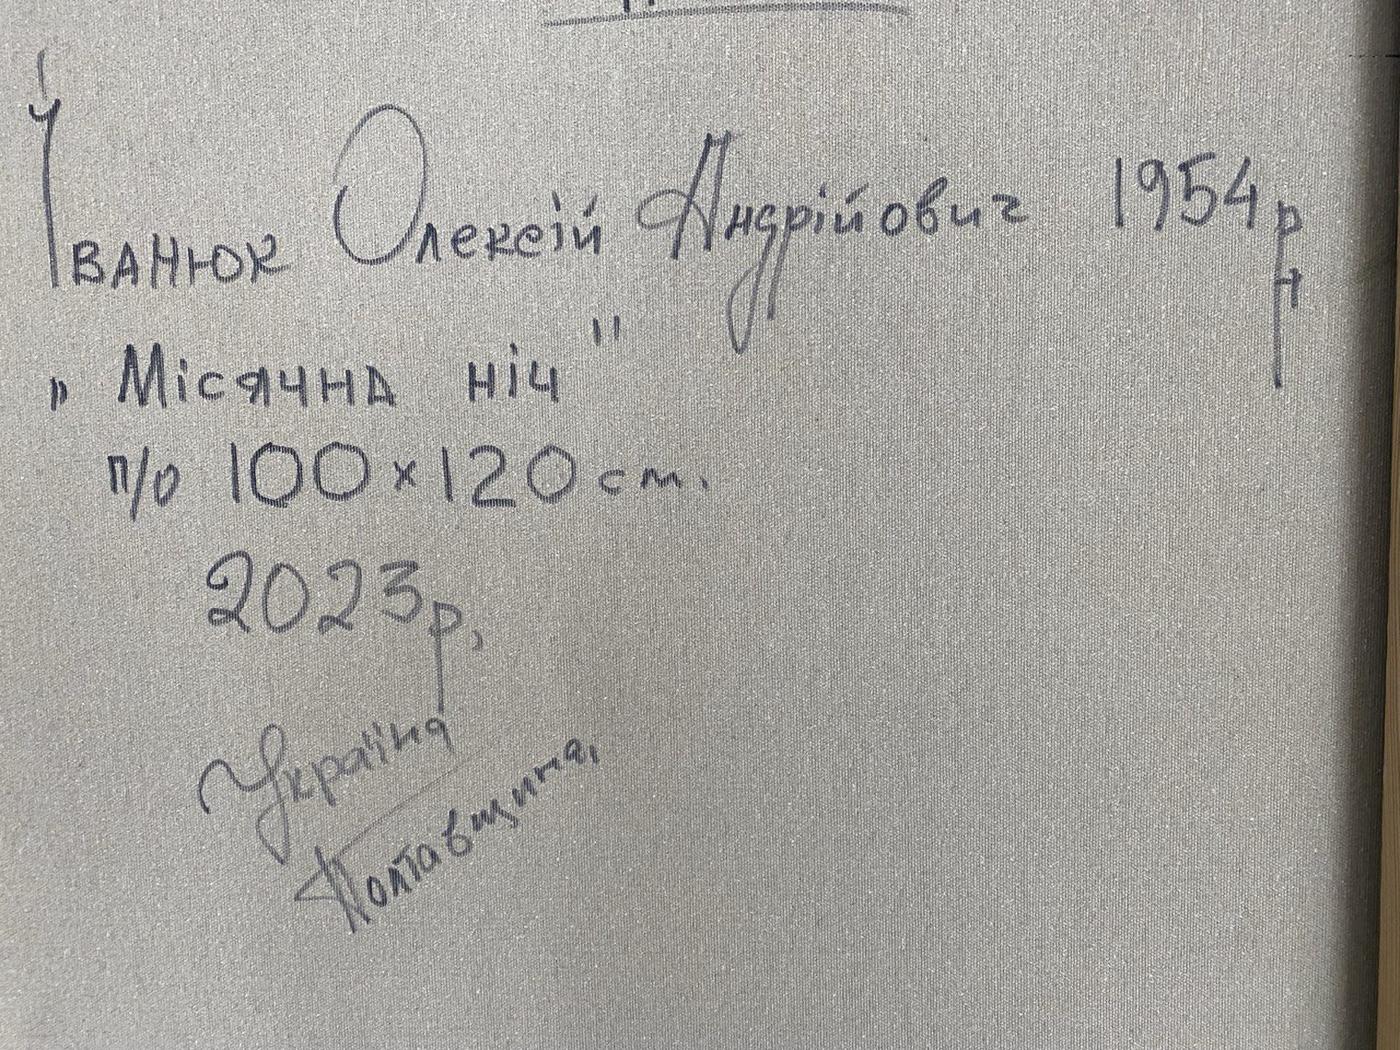 Іванюк Олексій Андрійович 1954 р н
„ Місячна ніч "
п/о 100 x 120 см.
2023 р,
Україна
Полтавщина,